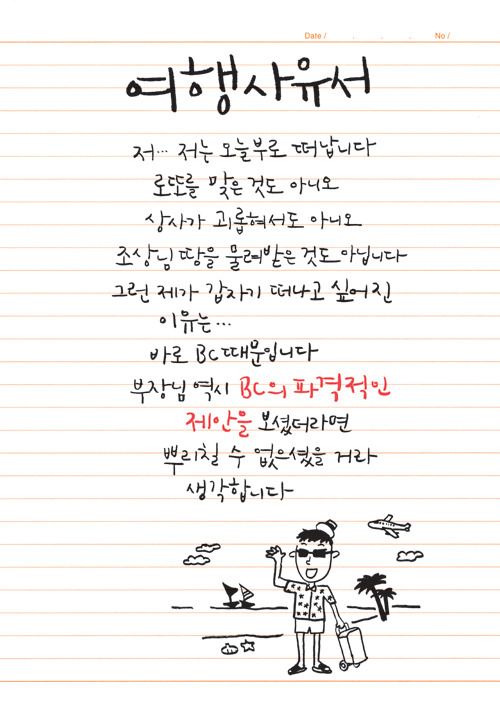 Date / . . . No /
여행사유서
저... 저는 오늘부로 떠납니다
로또를 맞은 것도 아니오
상사가 괴롭혀서도 아니오
조상님 땅을 물려받은 것도 아닙니다
그런 제가 갑자기 떠나고 싶어진
이유는...
바로 BC 때문입니다
부장님 역시 BC의 파격적인
제안을 보셨더라면
뿌리칠 수 없으셨을 거라
생각합니다